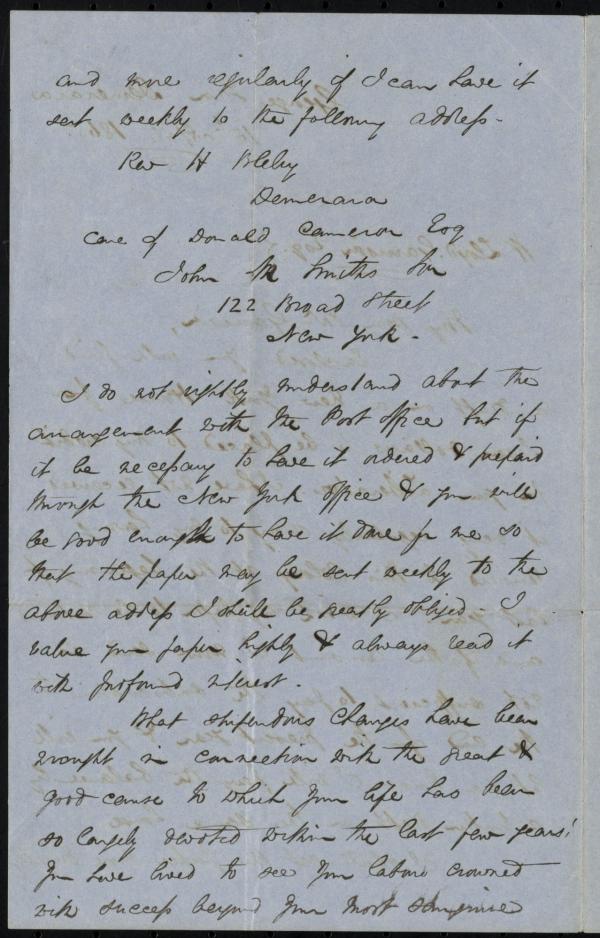 and more regularly if I can have it
sent weekly to the following address -
Rev H Bleby
Demerara
Care of Donald Cameron Esq
John M Smiths Son
122 Broad Street
New York -
I do not rightly understand about the
arrangement with the Post office but if
it be necessary to have it ordered & prepaid
through the New York office & you will
be good enough to have it done for me so
that the paper may be sent weekly to the
above address I shall be greatly obliged - I
value your paper highly & always read it
with profound interest.
What stupendous changes have been
wrought in connection with the great &
good cause to which your life has been
so largely devoted within the last few years!
You have lived to see your labours crowned
with success beyond your most sanguine